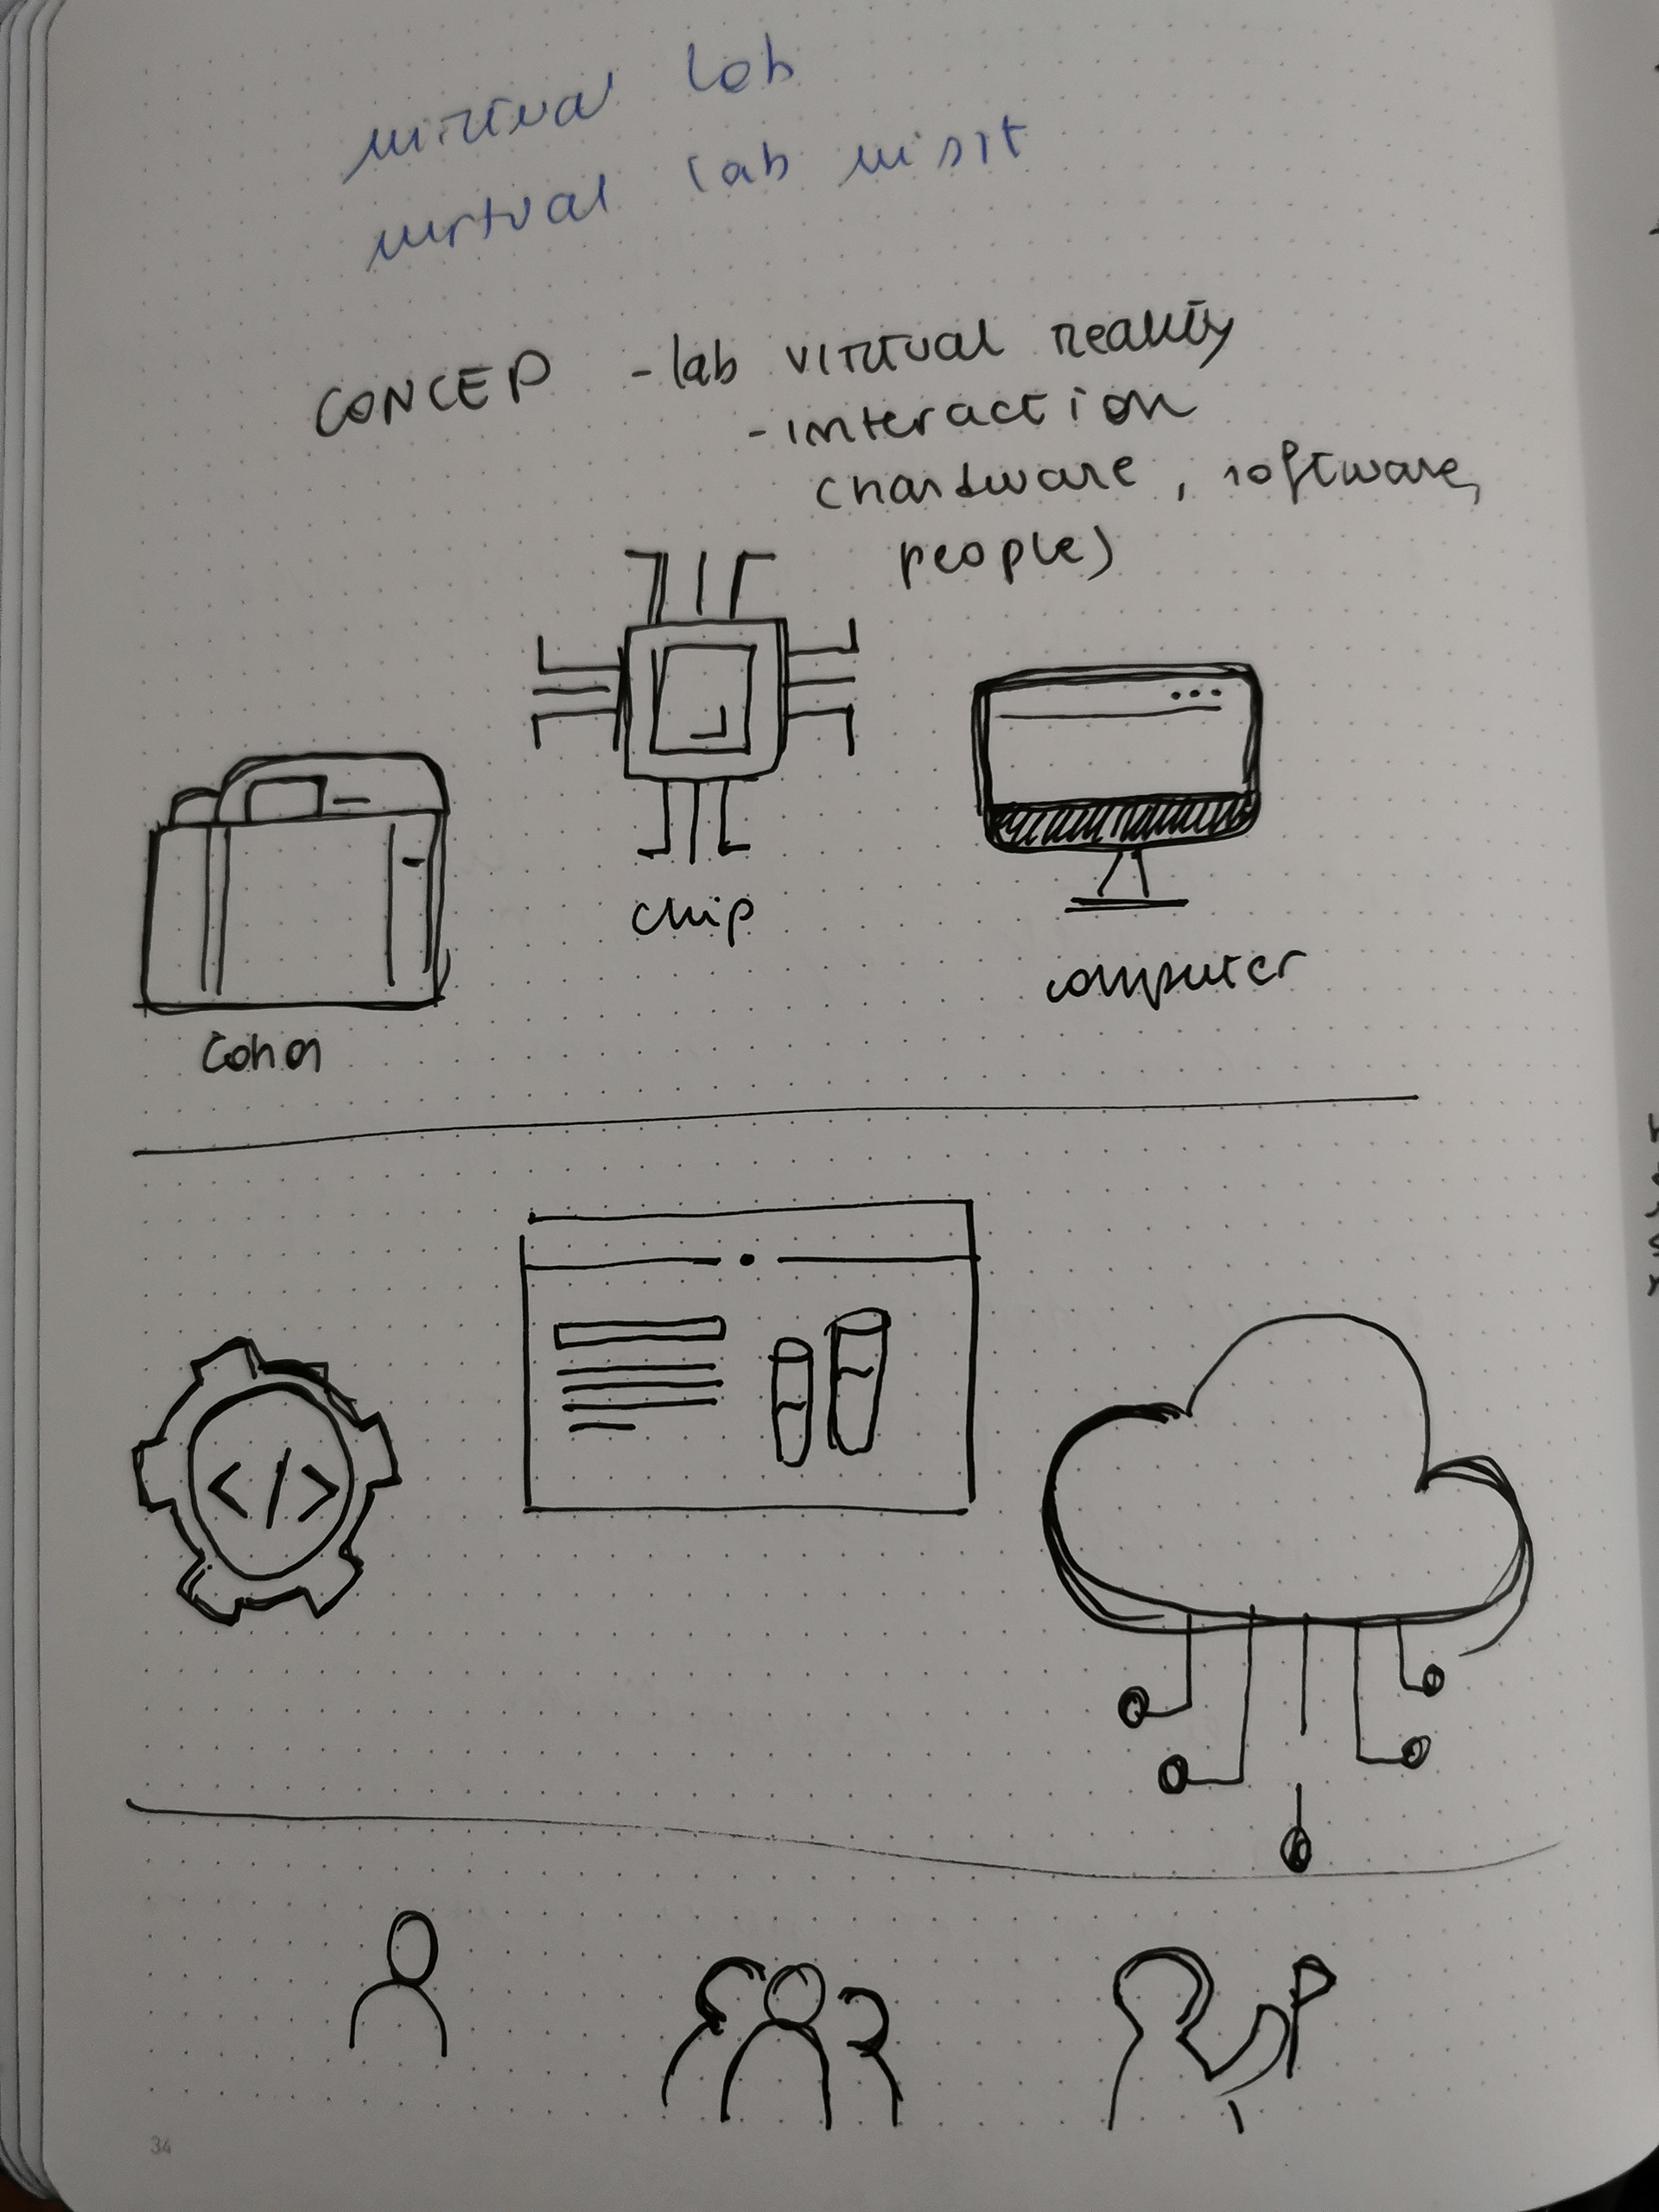 virtual lab
virtual lab visit
CONCEP - lab virtual reality
- interaction
(hardware, software,
people)
chip
computer
</>
34